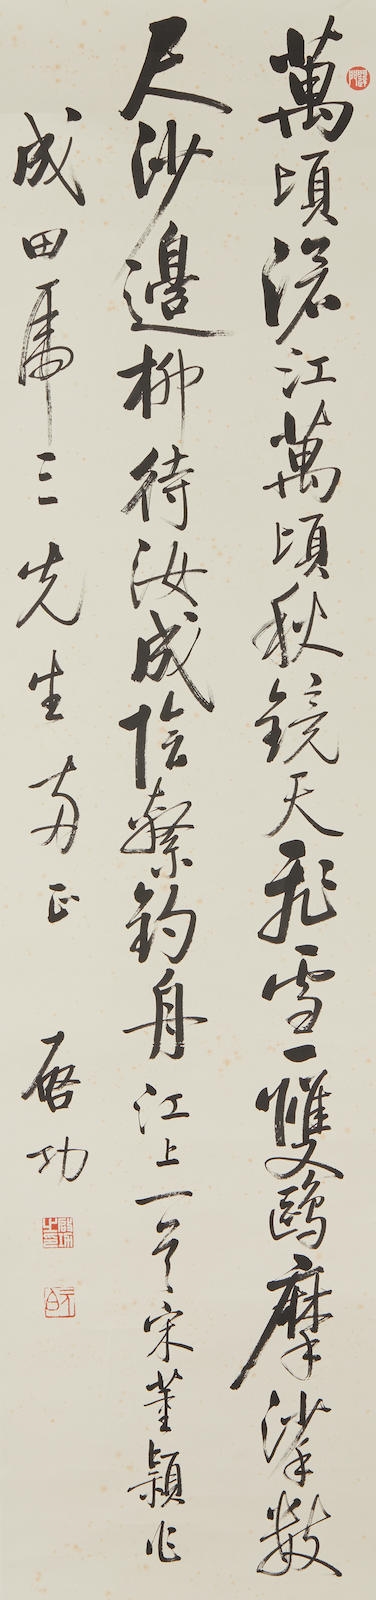 萬頃滄江萬頃秋鏡天飛雪一雙鷗摩挲數
尺沙邊柳待汝成陰繫釣舟江上一首宋董穎作
成田虎三先生兩正
啓功